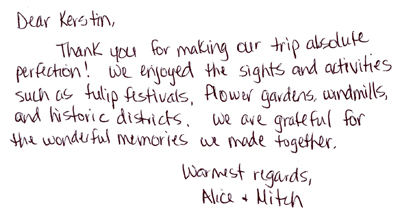 Dear Kerstin,
Thank you for making our trip absolute
perfection! We enjoyed the sights and activities
such as tulip festivals, flower gardens, windmills,
and historic districts. We are grateful for
the wonderful memories we made together.
Warmest regards,
Alice + Mitch